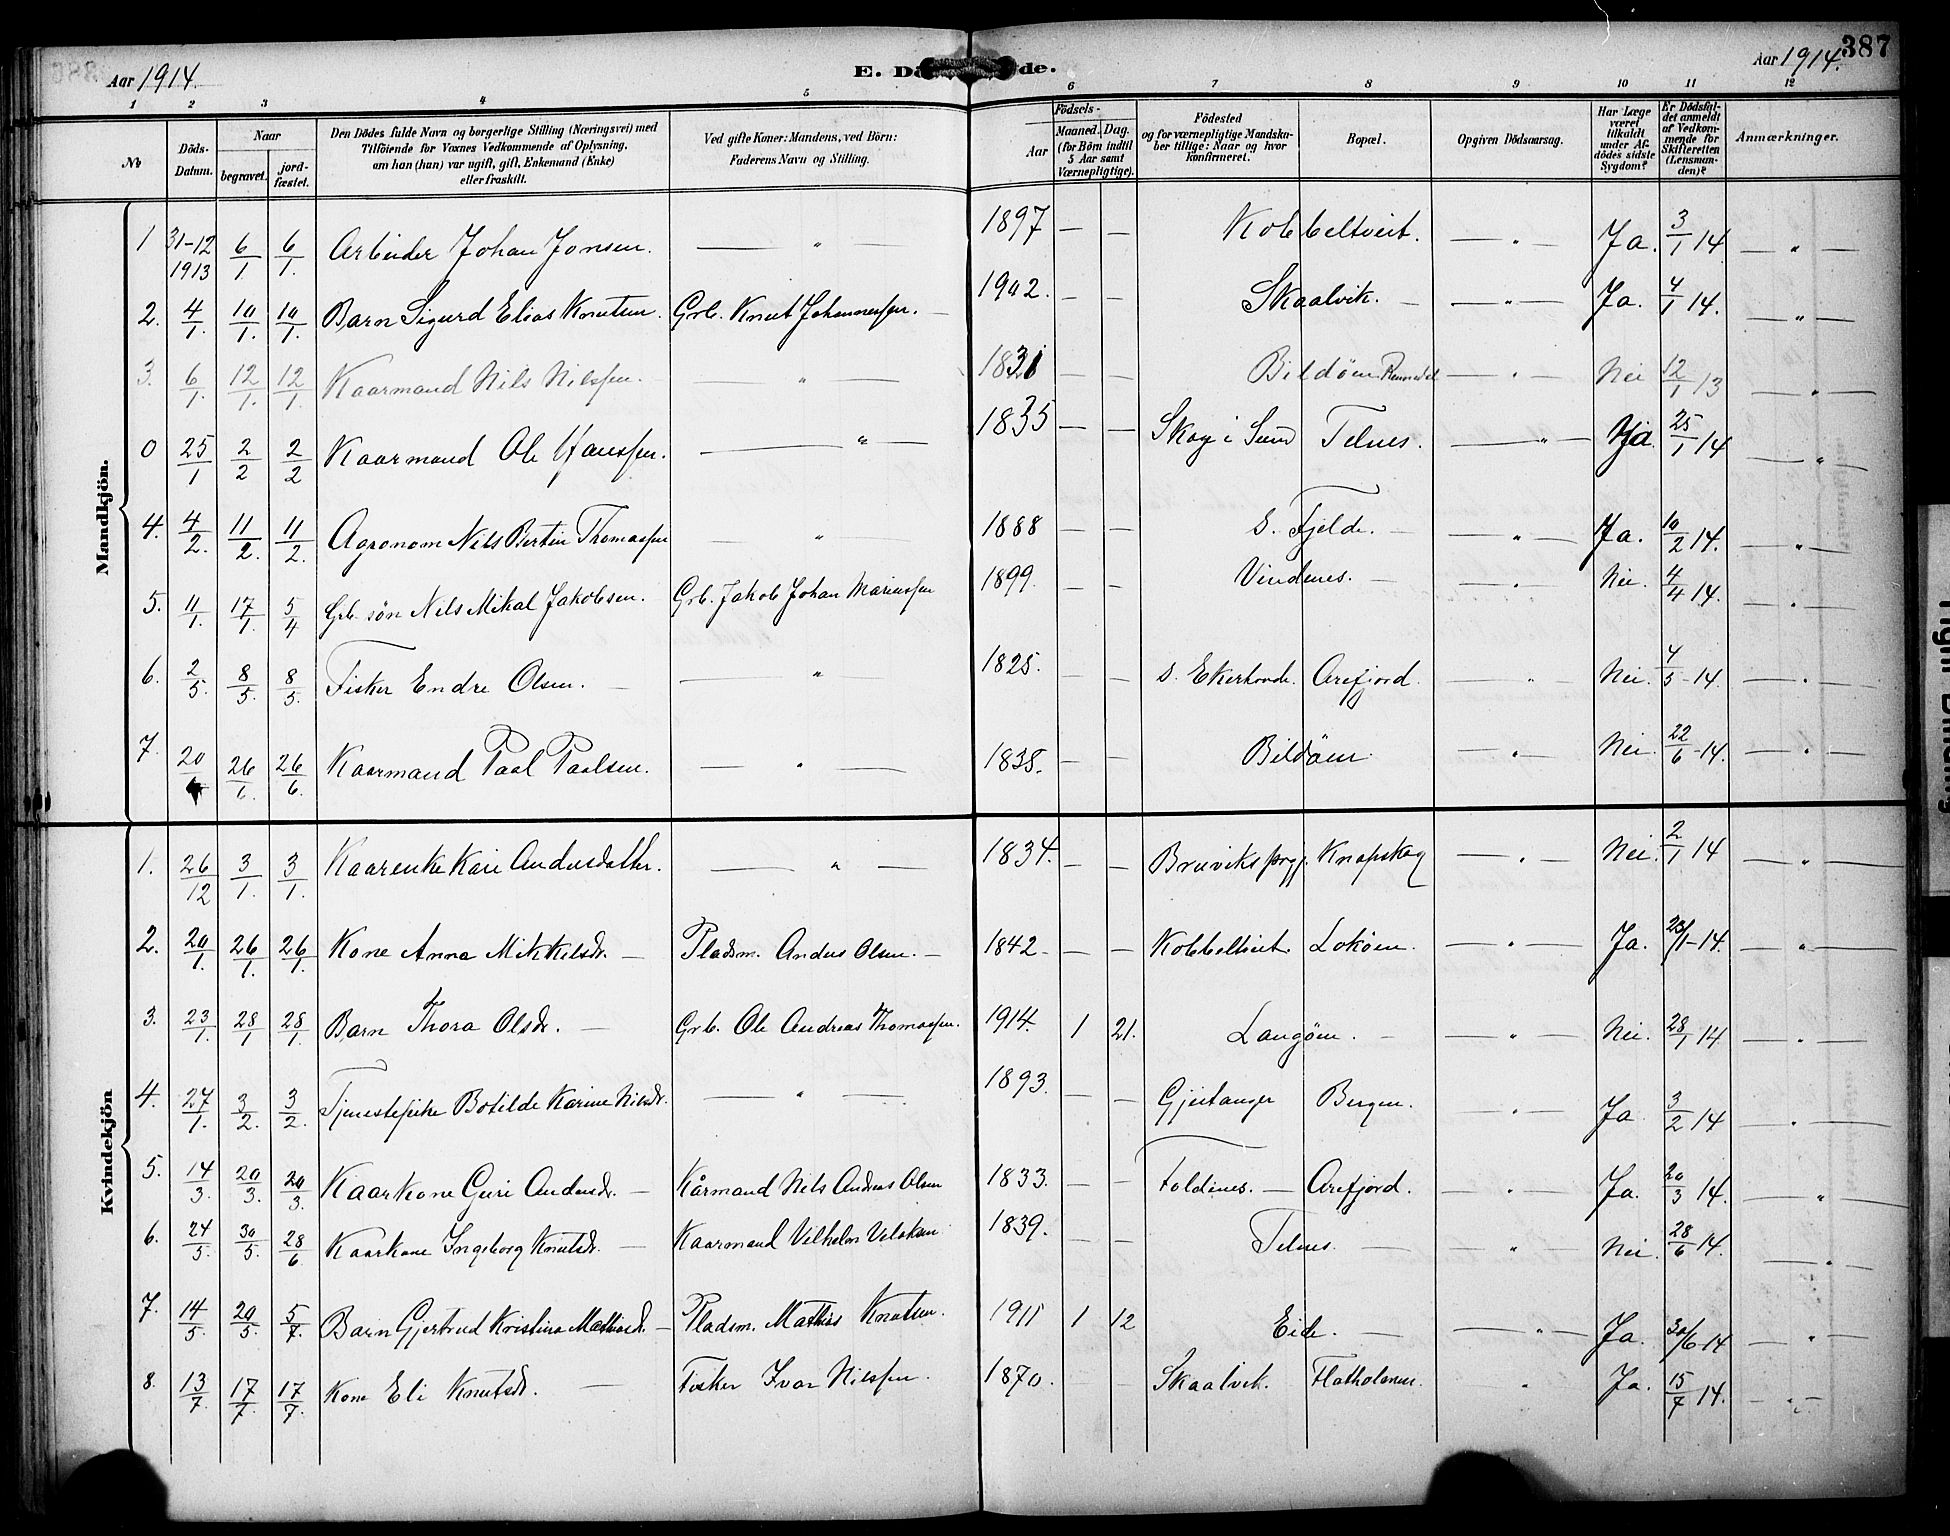 Aar 1914. E. Dö de. Aar 1914. 387
1 2 3 4 5 6 7 8 9 10 11 12
No
Döds-Datum.
Naar
begravet.
jord-fæstet.
Den Dödes fulde Navn og borgerlige Stilling (Næringsvei) med
Tilföiende for Voxnes Vedkommende af Oplysning,
om han (hun) var ugift, gift, Enkemand (Enke)
eller fraskilt.
Ved gifte Koner: Mandens, ved Börn:
Faderens Navn og Stilling.
Födsels-
Aar
Maaned. Dag.
(for Börn indtil
5 Aar samt
Værnepligtige).
Födested
og for værnepligtige Mandska-
ber tillige: Naar og hvor
konfirmeret.
Bopæl.
Opgiven Dödsaarsag.
Har Læge
været
tilkaldt
under Af-
dödes sidste
Sygdom?
Er Dödsfal-
det anmeldt
af Vedkom-
mende for
Skifteretten
(Lensman-
den)?
Anmærkninger.
Mandkjön.
1 31-12 1913 6/1 6/1. Arbeider Johan Jonsen. — " — 1897 — — Kobbeltveit. — " — Ja. 3/1 14 — " —
2. 4/1. 10/1. 10/1. Barn Sigurd Elias Knutsen. Grb. Knut Johannessen. — 1902. — — Skaalvik. — — " — Ja. 4/1 14. — " —
3. 6/1. 12/1. 12/1. Kaarmand Nils Nilssen. " — 1831 — — Bildöen — " — Nei 12/1 13 — " —
0 25/1 2/2 2/2 Kaarmand Ole Hanssen. — " — 1835 — — Skog i Sund Telnes. — " — Ja 25/1 14 — " —
4. 4/2. 11/2. 11/2. Agronom Nils Bertin Thomassen — " 1888 — — S. Fjelde. — — " — Ja. 10/2 14. — " —
5. 11/1. 17/1. 5/4 Grb. sön Nils Mikal Jakobsen. Grb. Jakob Johan Mariussen 1899. — — Vindenes. — — " — Nei. 4/4 14. — " —
6. 2/5. 8/5. 8/5. Fisker Endre Olsen. — — " 1825. — — S. Ekerhovde. Arefjord. — " — Nei. 4/5 - 14. — " —
7. 20/6 26/6. 26/6. Kaarmand Paal Paalsen. — " — 1838. — — Bildöen. — " — Nei. 22/6 - 14. — " —
Kvindekjön
1. 26/12 3/1. 3/1. Kaarenke Kari Andersdatter. — " — 1834. — — Bruviks prgj. Knapskog — " — Nei. 2/1 14 — " —
2. 20/1. 26/1. 26/1. Kone Anna Mikkelsdr. — Pladsm. Anders Olsen. — 1842 — — Kobbeltveit. Loköen. — " — Ja. 23/1 - 14. — " —
3. 23/1. 28/1 28/1. Barn Thora Olsdr. — Grb. Ole Andreas Thomassen. 1914. 1 21. Langöen. — — " — Nei. 28/1 14 — " —
4. 27/1. 3/2. 3/2. Tjenestepike Botilde Karine Nilsdr. — " — 1893. — — Gjeitanger Bergen. — " — Ja 3/2 14 — " —
5. 14/3. 20/3. 20/3. Kaarkone Guri Andersdr. — Kårmand Nils Andreas Olsen 1833. — — Foldenes. — Arefjord. — " — Ja. 20/3 14. — " —
6. 24/5. 30/5. 28/6 Kaarkone Ingeborg Knutsdr. — Kaarmand Vilhelm 1839. — — Telnes. — — " — Nei. 28/6 14. — " —
7. 14/5. 20/5. 5/7. Barn Gjertrud Kristina Mathisdr. — Pladsm. Mathis Knutsen. 1911 1 12 Eide. — — " — Ja. 30/6 14 — " —
8. 13/7. 17/7. 17/7. Kone Eli Knutsdr. — Fisker Ivar Nilssen. 1870. — — Skaalvik. Flatholmen. " Ja. 15/7 14. — " —